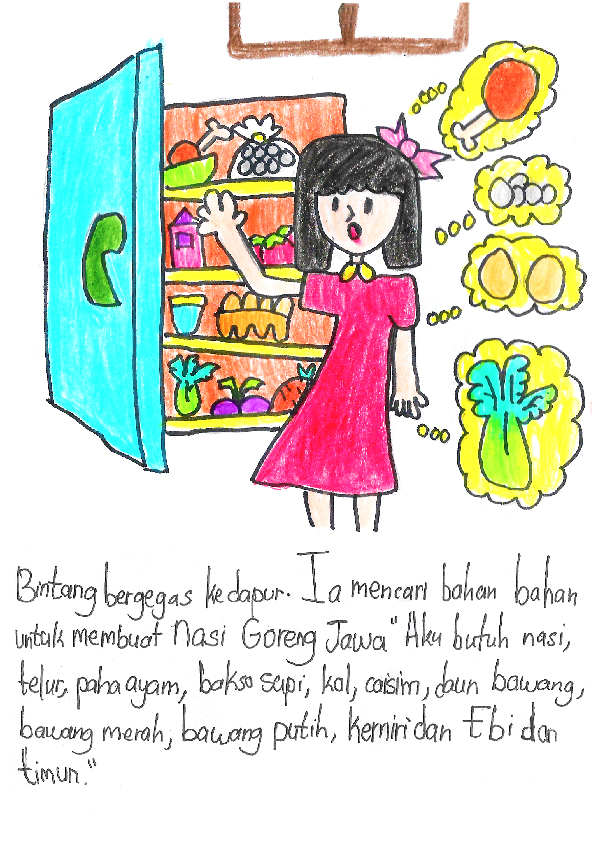 Bintang bergegas ke dapur. Ia mencari bahan bahan
untuk membuat Nasi Goreng Jawa "Aku butuh nasi,
telur, paha ayam, bakso sapi, kol, caisim, daun bawang,
bawang merah, bawang putih, kemiri dan Ebi dan
timun."